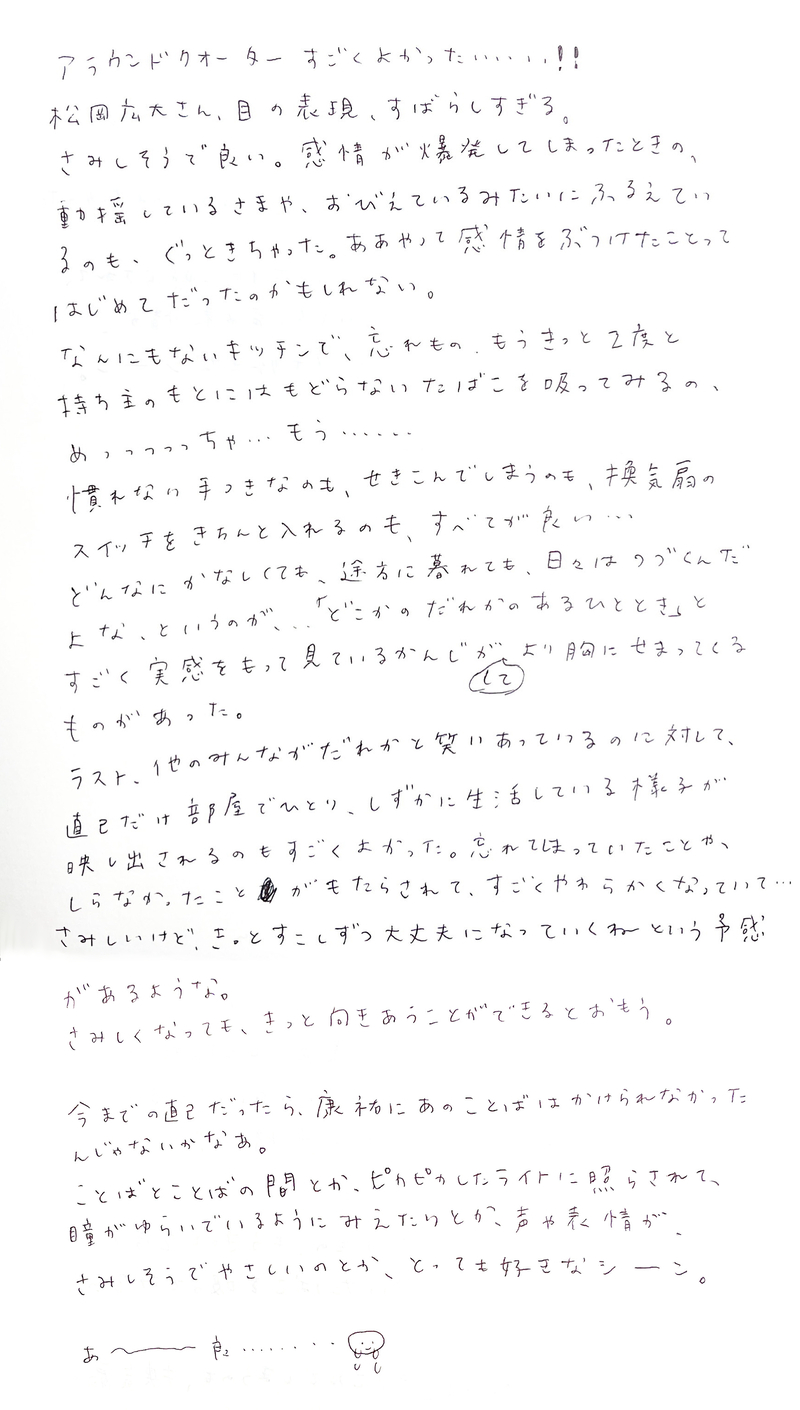 アラウンドクオーター すごくよかった‥‥‥!!
松岡広大さん、目の表現、すばらしすぎる。
さみしそうで良い。感情が爆発してしまったときの、
動揺しているさまや、おびえているみたいにふるえてい
るのも、ぐっときちゃった。ああやって感情をぶつけたことって
はじめてだったのかもしれない。
なんにもないキッチンで、忘れもの、もうきっと2度と
持ち主のもとにはもどらないたばこを吸ってみるの、
めっっっっちゃ… もう……
慣れない手つきなのも、せきこんでしまうのも、換気扇の
スイッチをきちんと入れるのも、すべてが良い…
どんなにかなしくても、途方に暮れても、日々はつづくんだ
よな、というのが、…「どこかのだれかのあるひととき」と
すごく実感をもって見ているかんじがして、より胸にせまってくる
ものがあった。
ラスト、他のみんながだれかと笑いあっているのに対して、
直己だけ部屋でひとり、しずかに生活している様子が
映し出されるのもすごくよかった。忘れてしまっていたことや、
しらなかったことがもたらされて、すごくやわらかくなっていて…
さみしいけど、きっとすこしずつ大丈夫になっていくねという予感
があるような。
さみしくなっても、きっと向きあうことができるとおもう。
今までの直己だったら、康祐にあのことばはかけられなかった
んじゃないかなあ。
ことばとことばの間とか、ピカピカしたライトに照らされて、
瞳がゆらいでいるようにみえたりとか、声や表情が、
さみしそうでやさしいのとか、とっても好きなシーン。
あ〜〜〜 良‥‥‥‥